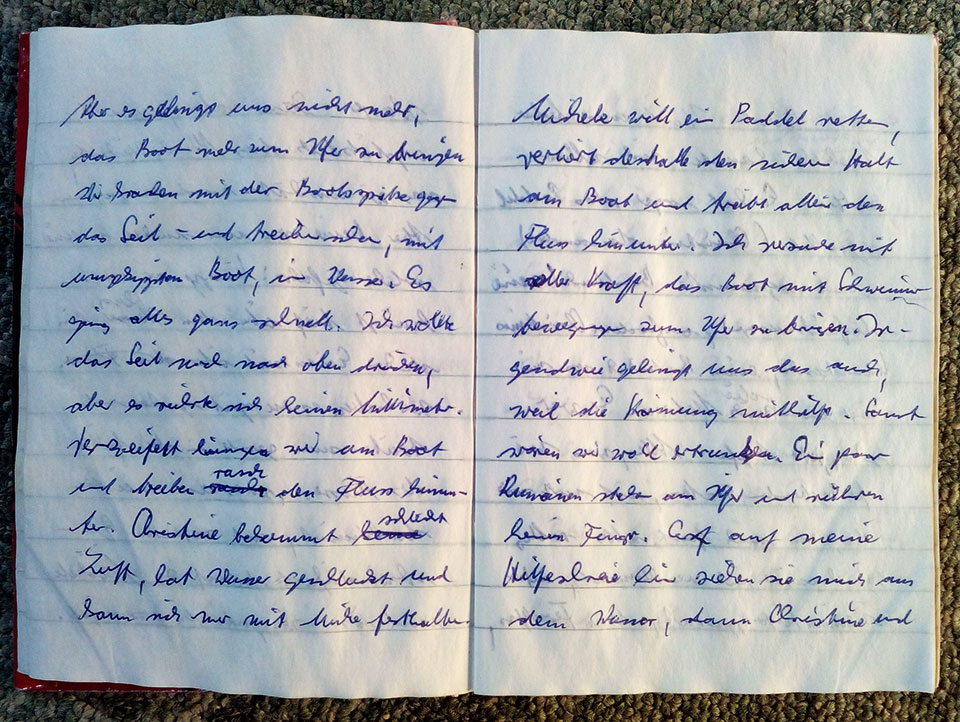 Aber es gelingt uns nicht mehr,
das Boot mehr zum Ufer zu bringen
Wir krachen mit der Bootsspitze gegen
das Seil – und treiben schon, mit
umgekippten Boot, im Wasser. Es
ging alles ganz schnell. Ich wollte
das Seil noch nach oben drücken,
aber es rückte sich keinen Millimeter.
Verzweifelt hängen wir am Boot
und treiben rasch den Fluss hinun-
ter. Christine bekommt schlecht
Luft, hat Wasser geschluckt und
kann sich nur mit Mühe festhalten.
Michele will ein Paddel retten,
verliert deshalb den sicheren Halt
am Boot und treibt allein den
Fluss hinunter. Ich versuche mit
aller Kraft, das Boot mit Schwimm-
bewegungen zum Ufer zu bringen. Ir-
gendwie gelingt uns das auch,
weil die Strömung mithilft. Sonst
wären wir wohl ertrunken. Ein paar
Rumänen stehen am Ufer und rühren
keinen Finger. Erst auf meine
Hilfeschreie hin ziehen sie mich aus
dem Wasser, dann Christine und